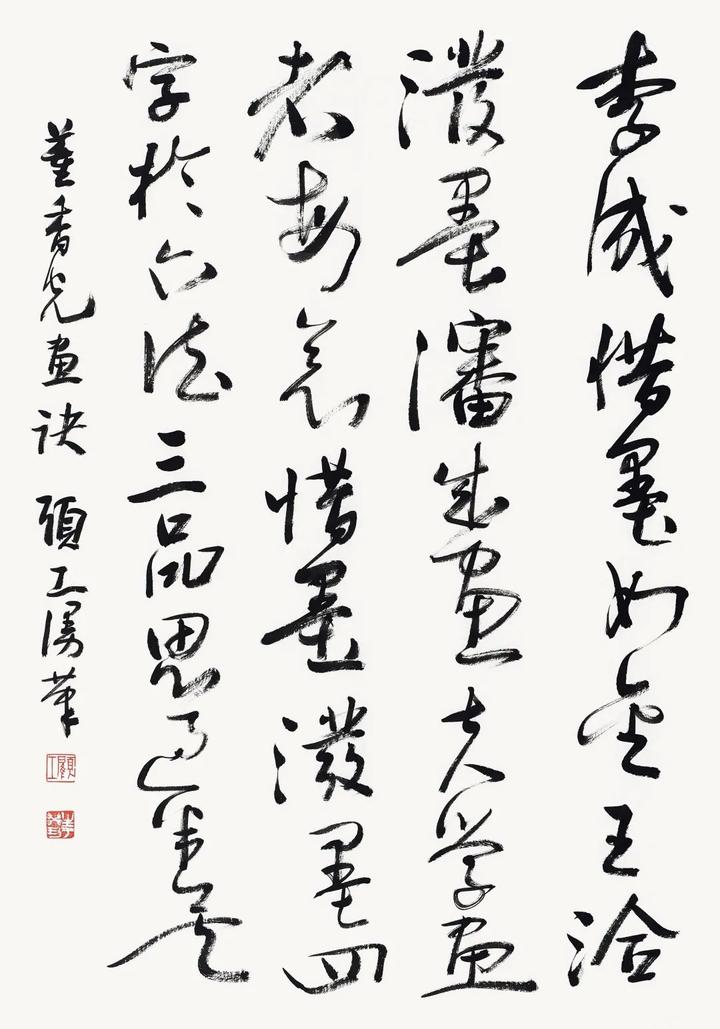 李成惜墨如金王洽
潑墨瀋成畫夫學畫
者每念惜墨潑墨四
字於六法三品思過半矣
董香光畫訣 顧工漫筆
顧工